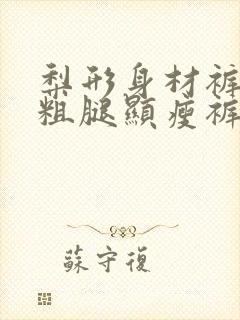 梨形身材裤
粗腿顯瘦裤
蘇守復